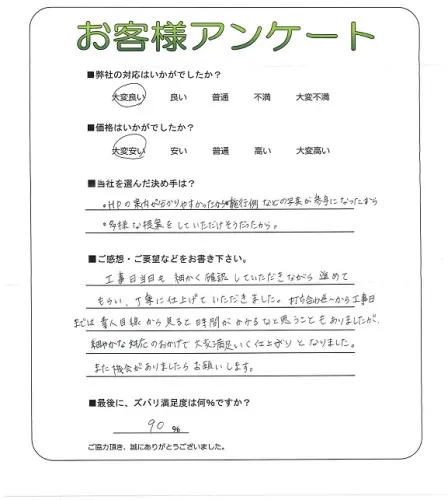 お客様アンケート
■弊社の対応はいかがでしたか？
大変良い 良い 普通 不満 大変不満
■価格はいかがでしたか？
大変安い 安い 普通 高い 大変高い
■当社を選んだ決め手は？
・HPの案内が分かりやすかったから・施行例などの写真が参考になったから
・多様な提案をしていただけそうだったから。
■ご感想・ご要望などをお書き下さい。
工事日当日も細かく確認していただきながら進めて
もらい、丁寧に仕上げていただきました。打ち合わせ〜から工事日
までは素人目線から見ると時間がかかるなと思うこともありましたが、
細やかな対応のおかげで大変満足いく仕上がりとなりました。
また機会がありましたらお願いします。
■最後に、ズバリ満足度は何%ですか？
90 %
ご協力頂き、誠にありがとうございました。